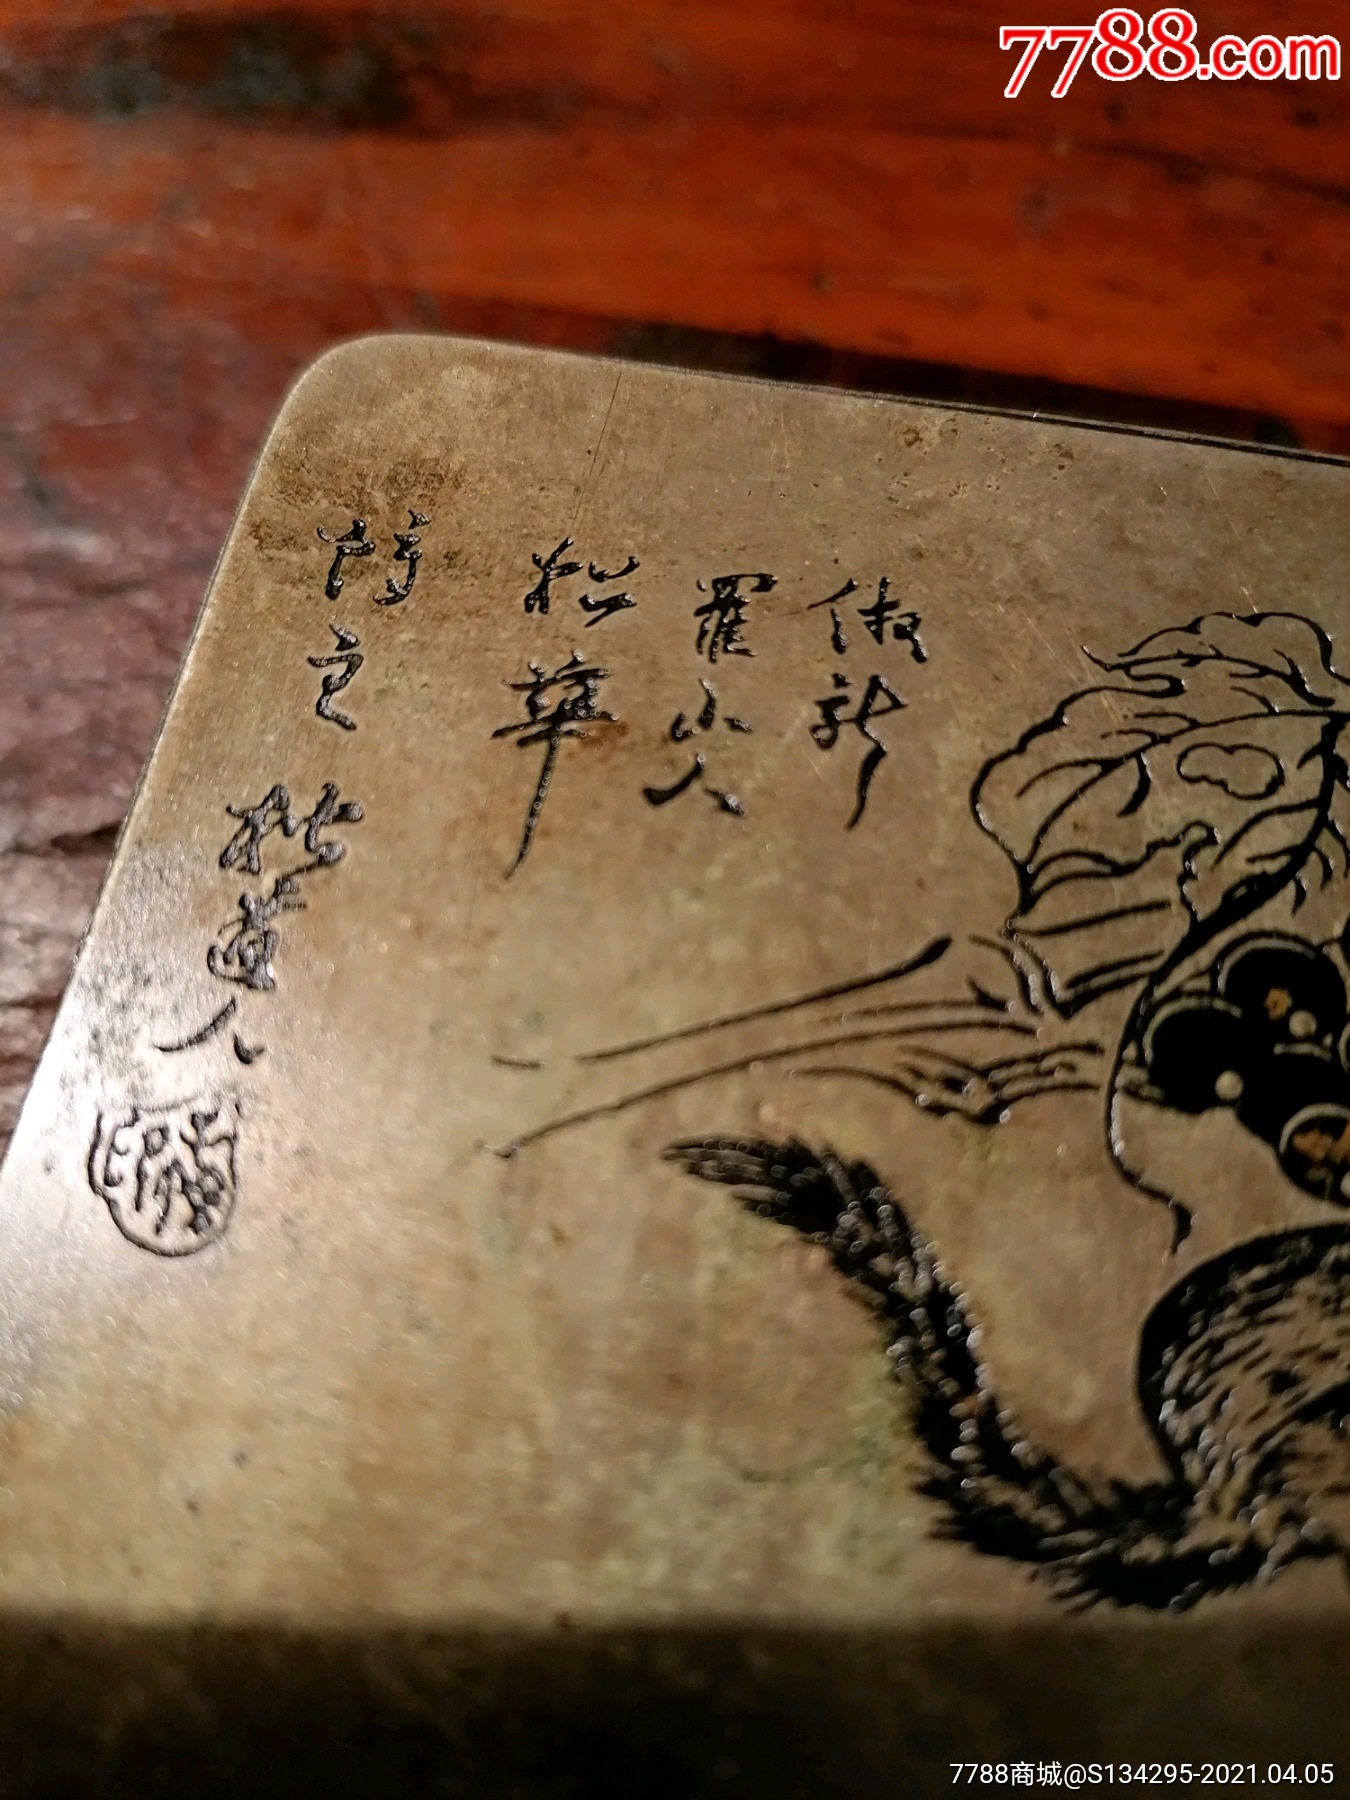 7788.com
倣新
羅山人
松華
時之 椒道人
7788商城@S134295-2021.04.05